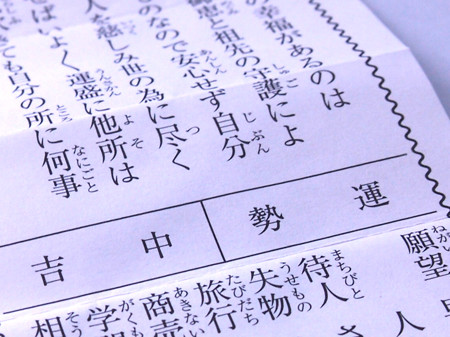 幸福があるのは
御恵と祖先の守護によ
のなので安心せず自分
人を慈しみ世の為に尽く
ばいよく運盛に他所は
ても自分の所に何事
運勢
中吉
願望
待人 人
失物 さ
旅行
商売
学
相